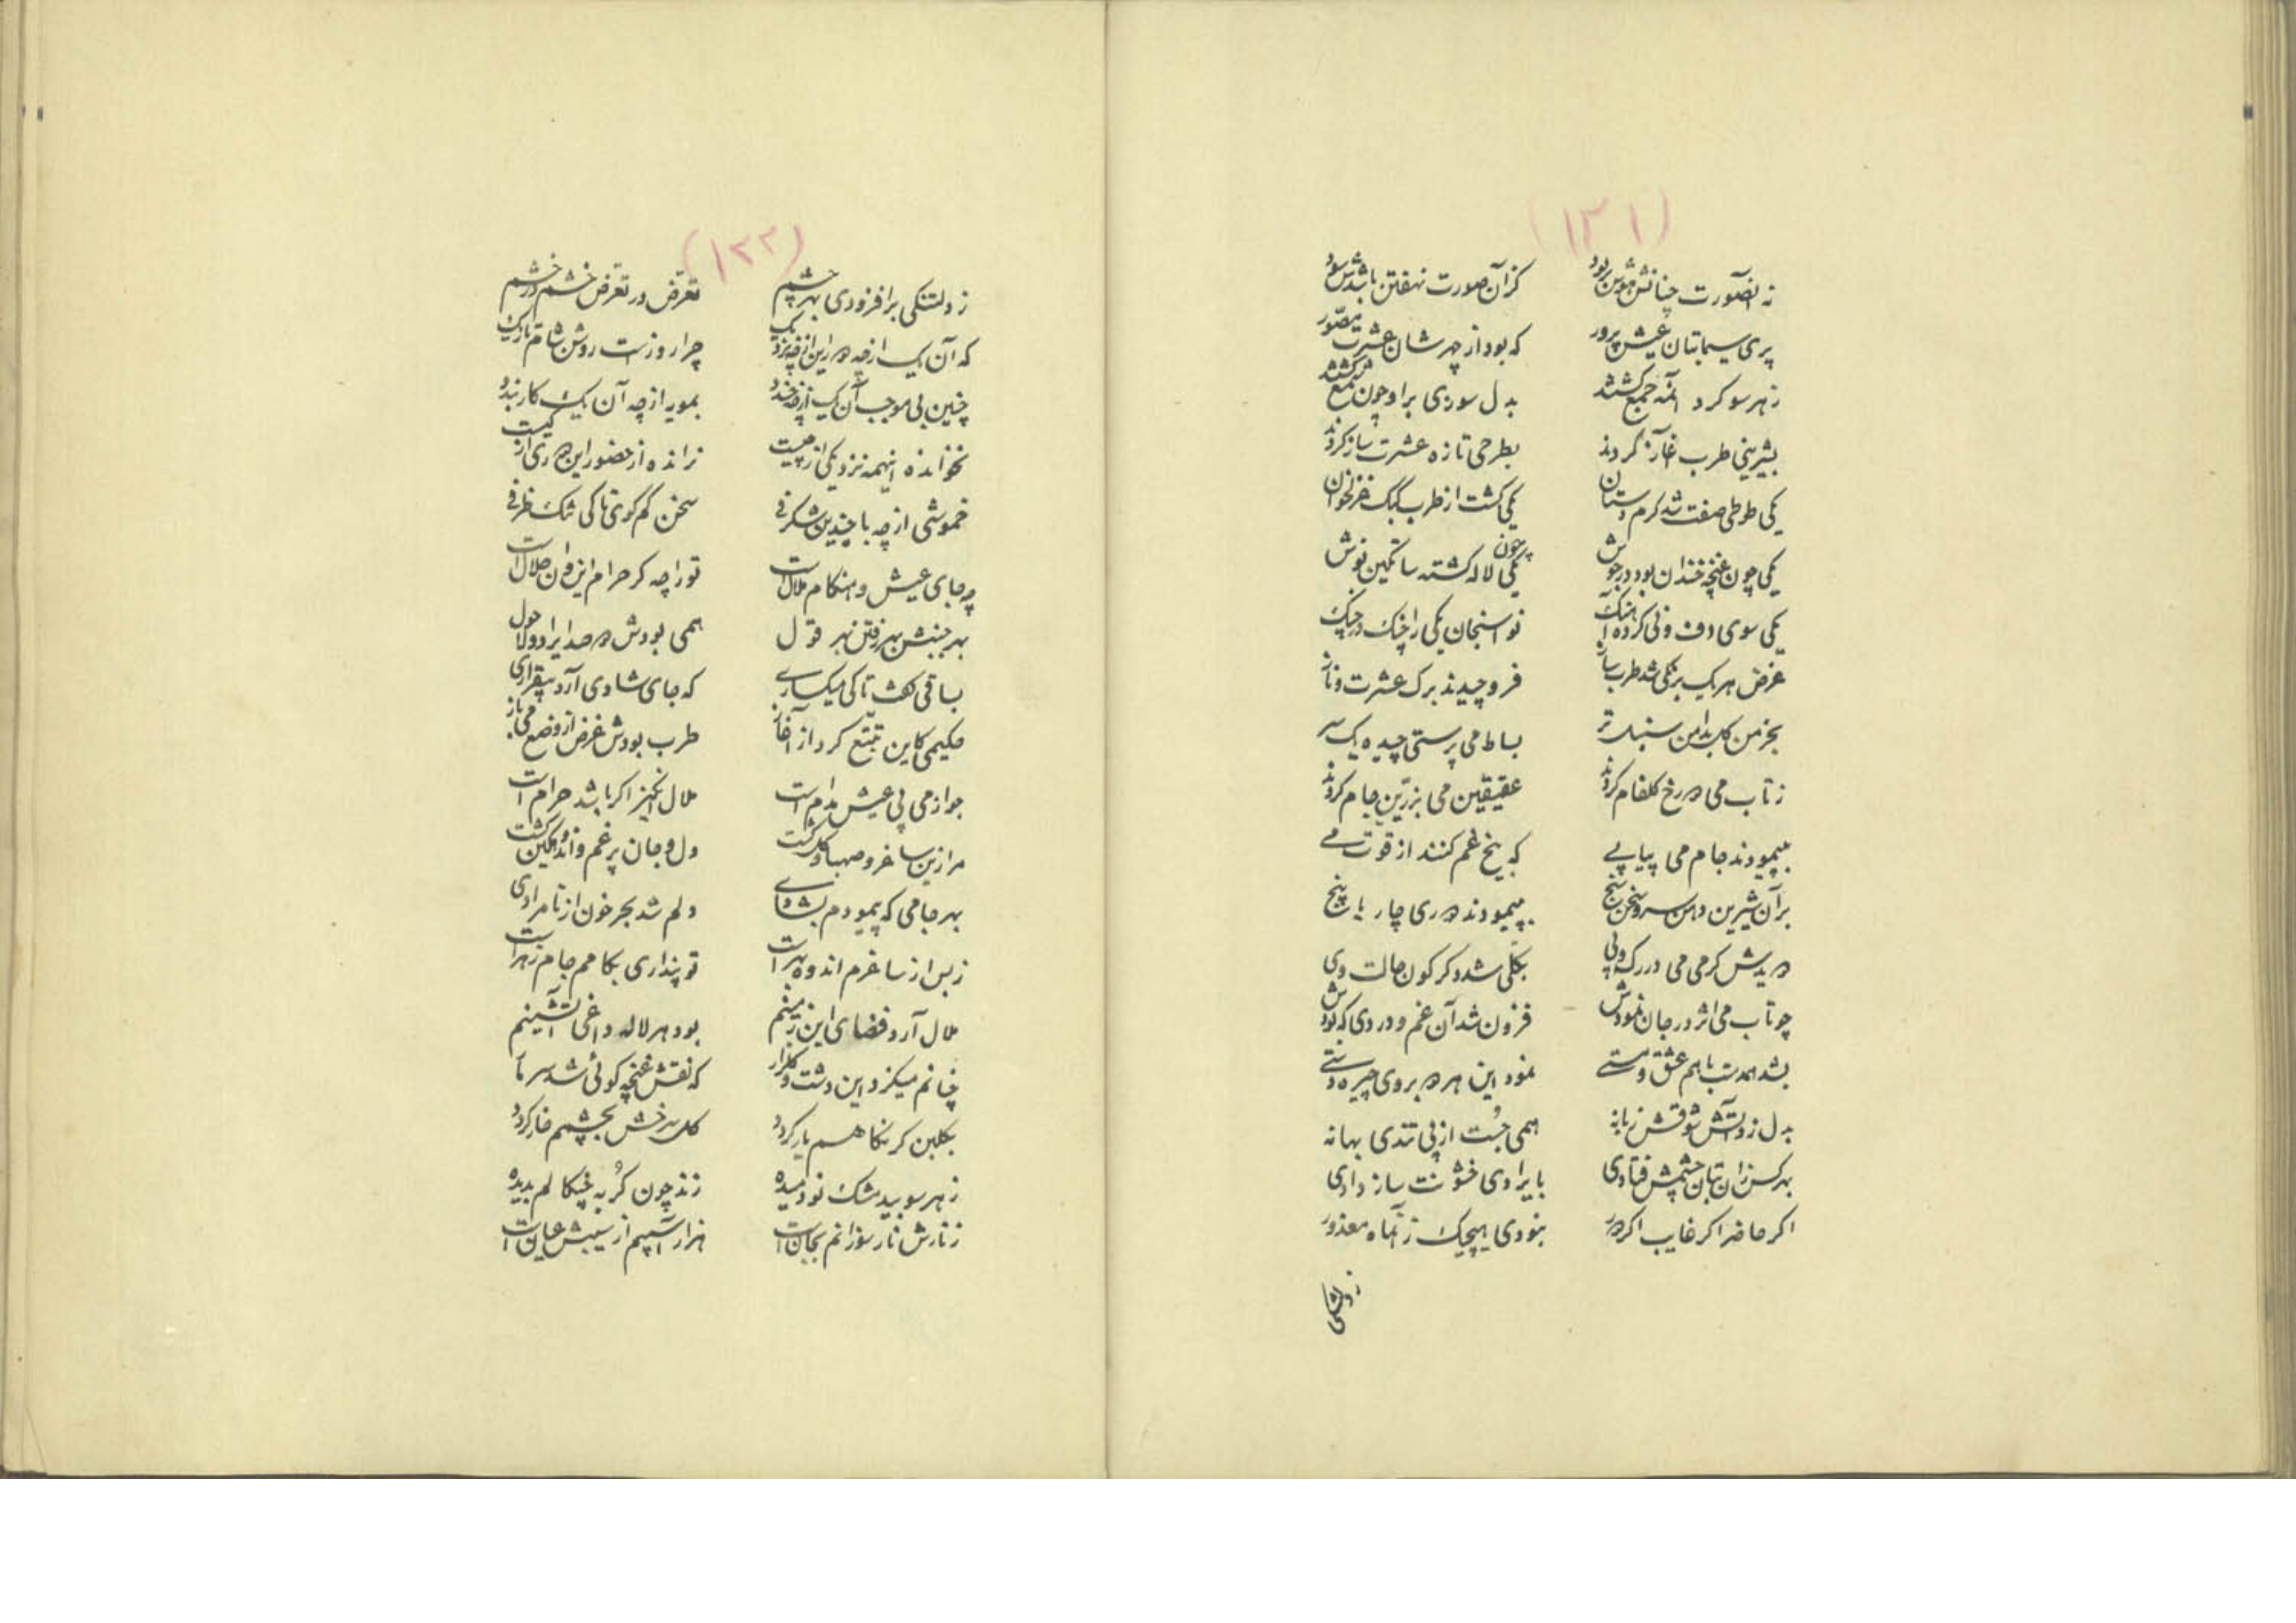 (۱۳۱)
نه آنصورت چنانش هوش بربود
کز آن صورت نهفتن باشدش سود
پری سیما بتان عیش پرور
که بود از چهرشان عشرت مصور
ز هر سو گرد آنمه جمع گشتند
بدل سوزی بر او چون شمع گشتند
بشیرینی طرب آغاز کردند
بطرحی تازه عشرت ساز کردند
یکی طوطی صفت شد گرم دستان
یکی گشت از طرب کبک غزلخوان
یکی چون غنچه خندان بود در جوش
یکی چون لاله گشته ساتکین نوش
یکی سوی دف و نی کرده آهنگ
نواسنجان یکی را چنگ در چنگ
غرض هر یک برنگی شد طرب ساز
فرو چیدند برگ عشرت و ناز
بخرمن گل بدامن سنبل تر
بساط می پرستی چیده یک سر
ز تاب می دو رخ گلفام کردند
عقیقین می بزرین جام کردند
بپیمودند جام می پیاپی
که بیخ غم کنند از قوت می
بر آن شیرین دهن سرو سخن سنج
بپیمودند دوری چار یا پنج
دویدش گرمی می در رگ و پی
بکلی شد دگرگون حالت وی
چو تاب می اثر در جان نمودش
فزون شد آن غم و دردی که بودش
بشد همدست با هم عشق و مستی
نمود این هر دو بر وی چیره دستی
بدل زد آتش شوقش زبانه
همی جست از پی تندی بهانه
بهر کس زان بتان چشمش فتادی
بایرادی خشونت ساز دادی
اگر حاضر اگر غایب اگر دور
نبودی هیچیک زآنماه معذور
ز دلتنگی
(۱۳۲)
ز دلتنگی برافزودی بهر چشم
تعرض در تعرض خشم در خشم
که آن یک از چه دور این از چه نزدیک
چرا روز است روشن شام تاریک
چنین بی موجب آن یک از چه خندد
بمویه از چه آن یک کار بندد
نخوانده اینهمه نزدیکی از چیست
نرانده از حضور این دوری از کیست
خموشی از چه با چندین شگرفی
سخن کم گوی تا کی تنک ظرفی
چه جای عیش و هنگام ملال است
تو را چه گر حرام این و آن حلال است
بهر جنبش بهر رفتن بهر قول
همی بودش دو صد ایراد و لاحول
بساقی گفت تا کی میگساری
که جای شادی آرد بیقراری
حکیمی کاین تتبع کرد از آغاز
طرب بودش غرض از وضع می باز
جواز می پی عیش مدام است
ملال انگیز اگر باشد حرام است
مرا زین ساغر و صهبا و گلگشت
دل و جان پر غم و اندوهگین گشت
بهر جامی که پیمودم بشادی
دلم شد بحر خون از نامرادی
ز بس از ساغرم اندوه بهر است
تو پنداری بکامم جام زهر است
ملال آرد فضای این زمینم
بود هر لاله داغی آتشینم
چنانم میگزد این دشت و گلزار
که نقش غنچه گوئی شد سر مار
بگلبن گر نگاهم یار گردد
گل سرخش بچشمم خار گردد
ز هر سو بید مشک نو دمیده
زند چون گربه چنگالم بدیده
ز نارش نار سوزانم بجان است
هزار آسیبم از سیبش عیان است